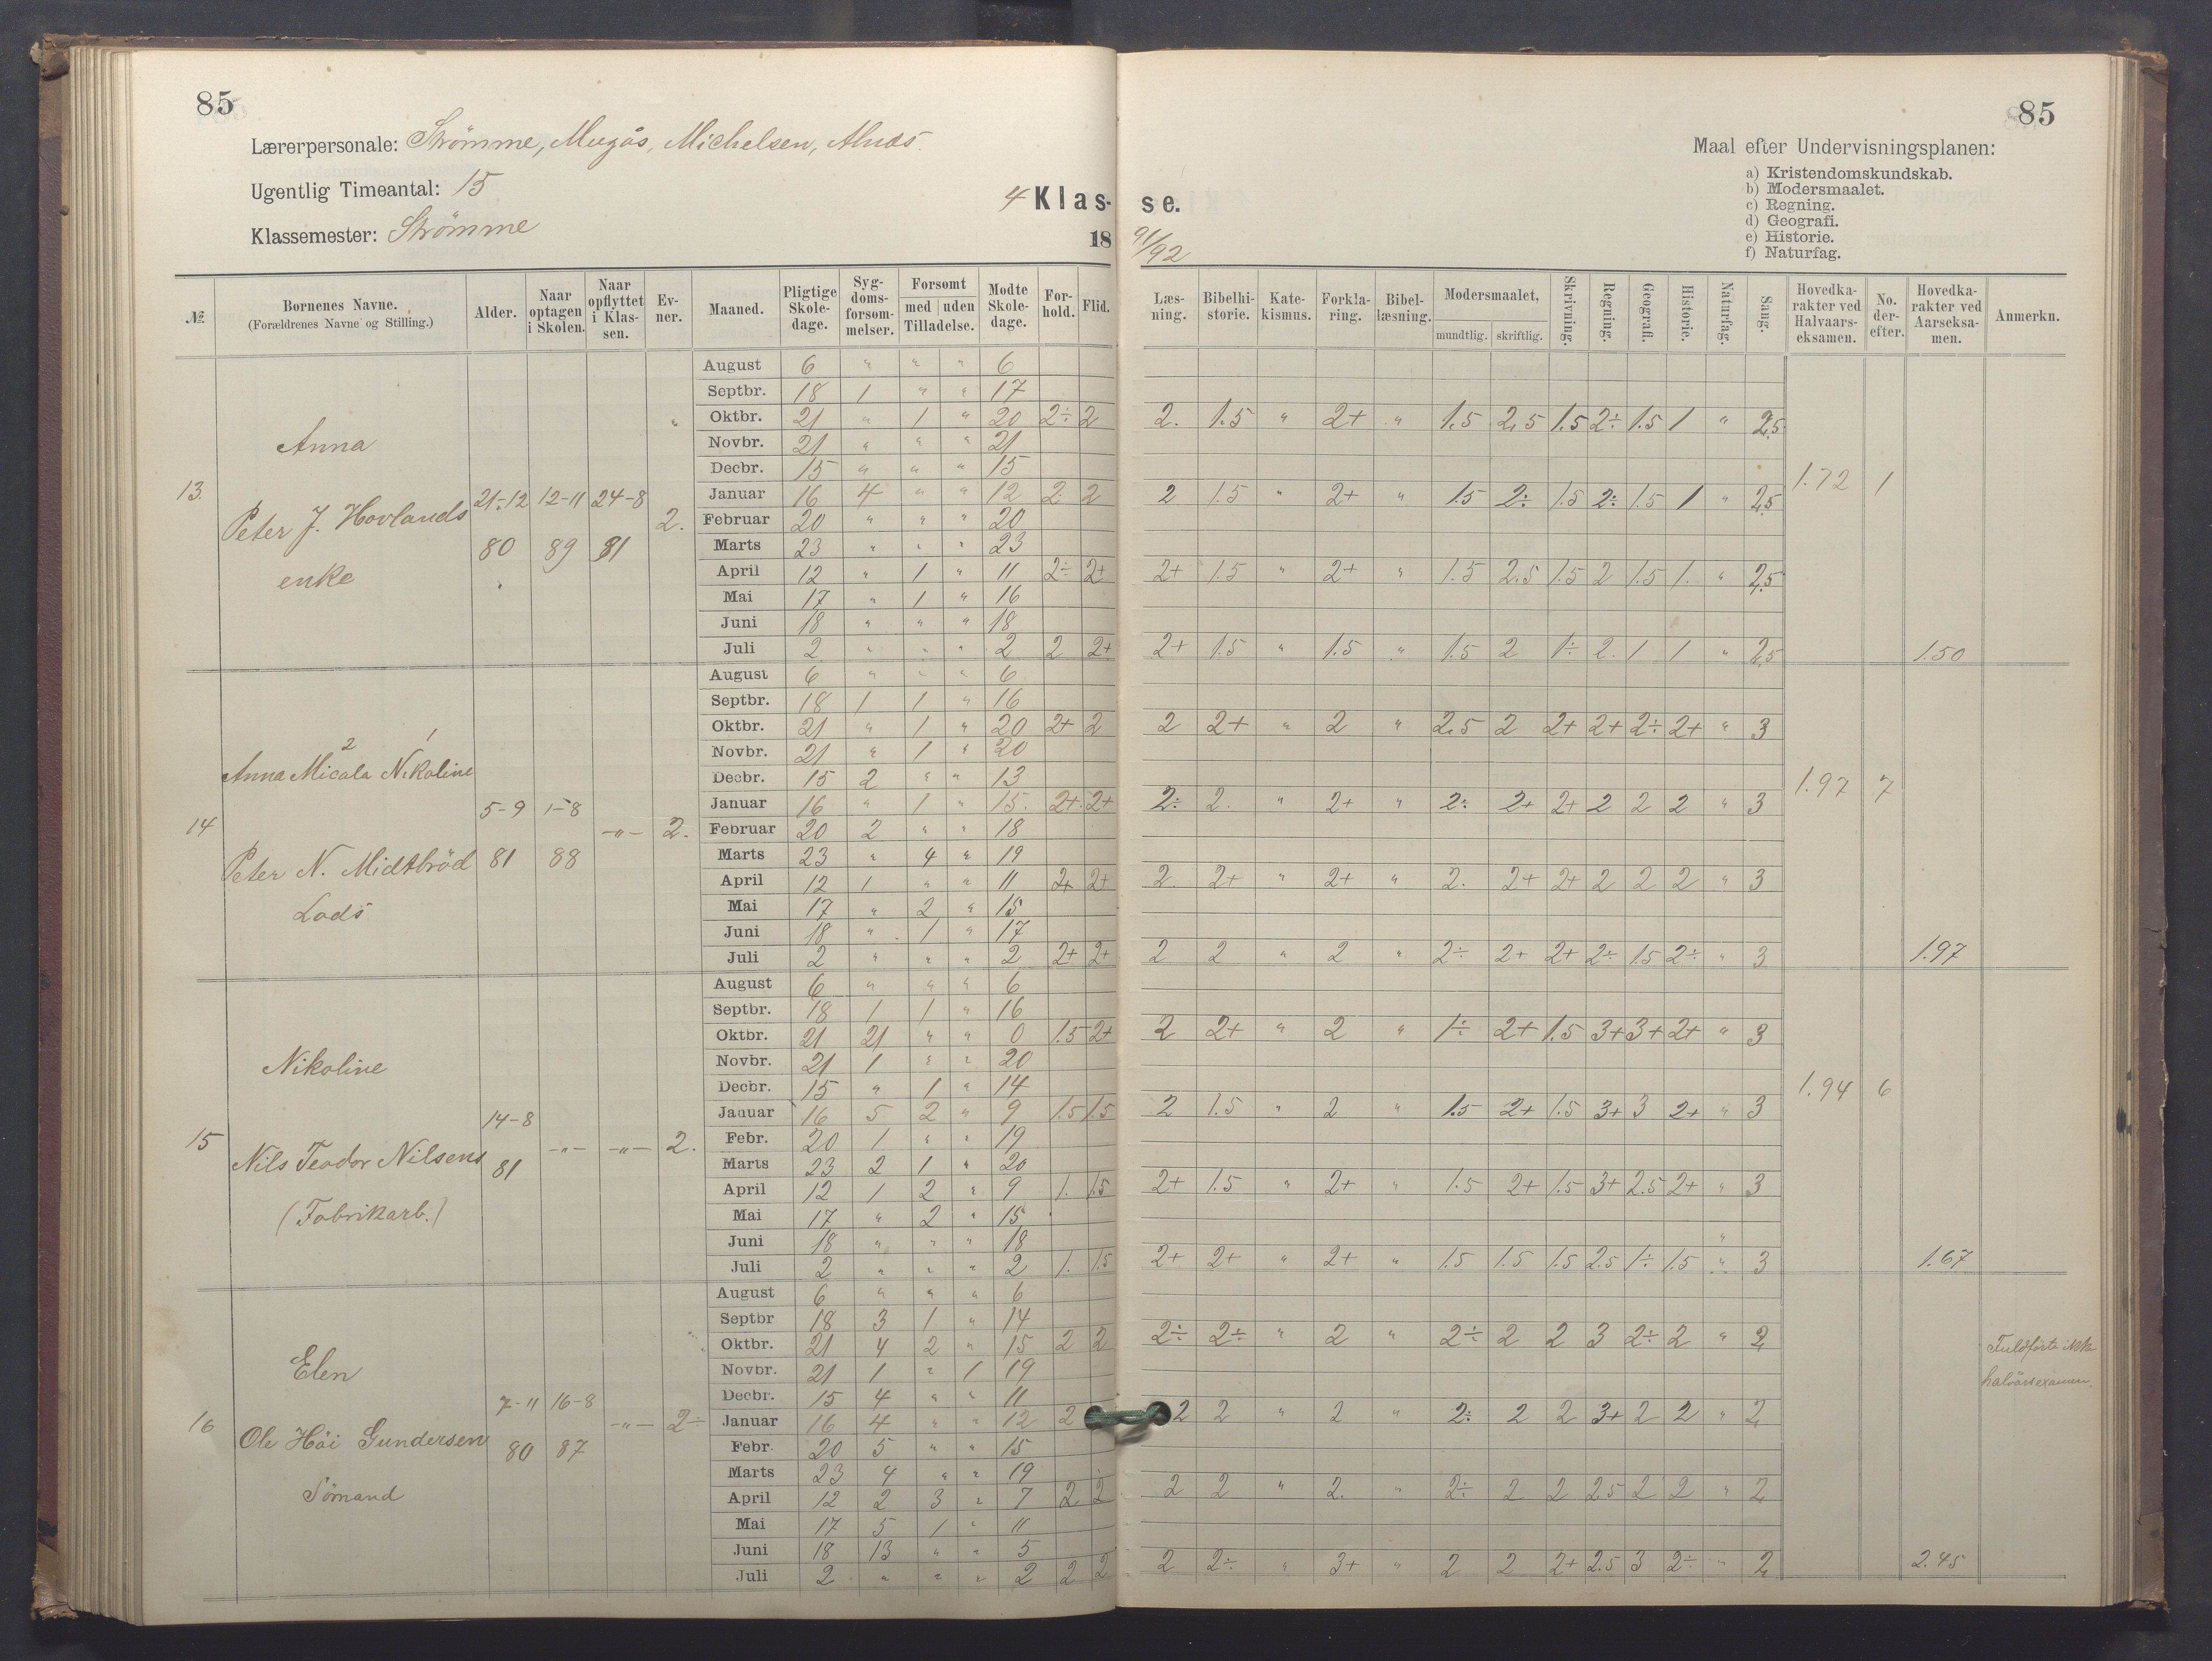 85
85
Lærerpersonale: Strømme, Mugås, Michelsen, Alnæs.
Ugentlig Timeantal: 15
Klassemester: Strømme
4 Klas- se.
18 91/92
Maal efter Undervisningsplanen:
a) Kristendomskundskab.
b) Modersmaalet.
c) Regning.
d) Geografi.
e) Historie.
f) Naturfag.
№. Børnenes Navne. (Forældrenes Navne og Stilling.) Alder. Naar optagen i Skolen. Naar opflyttet i Klassen. Evner. Maaned. Pligtige Skoledage. Sygdomsforsømmelser. Forsømt med uden Tilladelse. Mødte Skoledage. Forhold. Flid. Læsning. Bibelhistorie. Katekismus. Forklaring. Bibellæsning. Modersmaalet, mundtlig. skriftlig. Skrivning. Regning. Geografi. Historie. Naturfag. Sang. Hovedkarakter ved Halvaarseksamen. No. derefter. Hovedkarakter ved Aarseksamen. Anmerkn.
13. Anna
Peter J. Hovlands
enke
21-12 80 12-11 89 24-8 81 2.
August 6 " " " 6
Septbr. 18 1 " " 17
Oktbr. 21 " 1 " 20 2÷ 2 2. 1.5 " 2+ " 1.5 2.5 1.5 2÷ 1.5 1 " 2.5
Novbr. 21 " " " 21
Decbr. 15 " " " 15
Januar 16 4 " " 12 2 2 2 1.5 " 2+ " 1.5 2÷ 1.5 2÷ 1.5 1 " 2.5 1.72 1
Februar 20 " " " 20
Marts 23 " " " 23
April 12 " 1 " 11 2÷ 2+ 2+ 1.5 " 2+ " 1.5 2.5 1.5 2 1.5 1. " 2.5
Mai 17 " 1 " 16
Juni 18 " " " 18
Juli 2 " " " 2 2 2+ 2+ 1.5 " 1.5 " 1.5 2 1÷ 2. 1 1 " 2.5 1.50
14 Anna Micala Nikoline
2 1
Peter N. Midtbröd
Lods
5-9 81 1-8 88 -"- 2.
August 6 " " " 6
Septbr. 18 1 1 " 16
Oktbr. 21 " 1 " 20 2+ 2 2 2+ " 2 " 2.5 2 2+ 2+ 2÷ 2+ " 3
Novbr. 21 " 1 " 20
Decbr. 15 2 " " 13
Januar 16 " 1 " 15. 2+ 2+ 2÷ 2. " 2+ " 2÷ 2+ 2+ 2 2 2 " 3 1.97 7
Februar 20 2 " " 18
Marts 23 " 4 " 19
April 12 1 " " 11 2+ 2+ 2. 2+ " 2+ " 2. 2+ 2+ 2 2 2 " 3
Mai 17 " 2 " 15
Juni 18 " 1 " 17
Juli 2 " " " 2 2+ 2+ 2 2 " 2 " 2÷ 2+ 2+ 2÷ 1.5 2÷ " 3 1.97
15 Nikoline
Nils Teodor Nilsens
(Fabrikarb.)
14-8 81 -"- -"- 2.
August 6 " " " 6
Septbr. 18 1 1 " 16
Oktbr. 21 21 " " 0 1.5 2+ 2 2+ " 2 " 1÷ 2+ 1.5 3+ 3+ 2+ " 3
Novbr. 21 1 " " 20
Decbr. 15 " 1 " 14
Januar 16 5 2 " 9 1.5 1.5 2 1.5 " 2 " 1.5 2+ 1.5 3+ 3 2+ " 3 1.94 6
Febr. 20 1 " " 19
Marts 23 2 1 " 20
April 12 1 2 " 9 1. 1.5 2+ 1.5 " 2+ " 1.5 2+ 1.5 3+ 2.5 2+ " 3
Mai 17 " 2 " 15
Juni 18 " " " 18 "
Juli 2 " " " 2 1. 1.5 2+ 2+ " 2+ " 1.5 1.5 1.5 2.5 1÷ 1.5 " 3 1.67
16 Elen
Ole Høi Gundersen
Sömand
7-11 80 16-8 87 -"- 2÷
August 6 " " " 6
Septbr 18 3 1 " 14
Oktbr. 21 4 2 " 15 2 2 2÷ 2÷ " 2 " 2÷ 2 2 3 2÷ 2 " 2 Fuldførte ikke
halvårsexamen.
Novbr. 21 1 " 1 19
Decbr. 15 4 " " 11
Januar 16 4 " " 12 2 2 2 " 2 " 2÷ 2 2 3+ 2 2 " 2
Febr. 20 5 " " 15
Marts 23 4 " " 19
April 12 2 3 " 7 2 2 2 2 " 2. " 2÷ 2 2 2.5 2 2 " 2
Mai 17 5 1 " 11
Juni 18 13 " " 5
Juli 2 " " " 2 2 2 2 2÷ " 3+ " 2 2 2+ 2.5 3 2÷ " 2 2.45